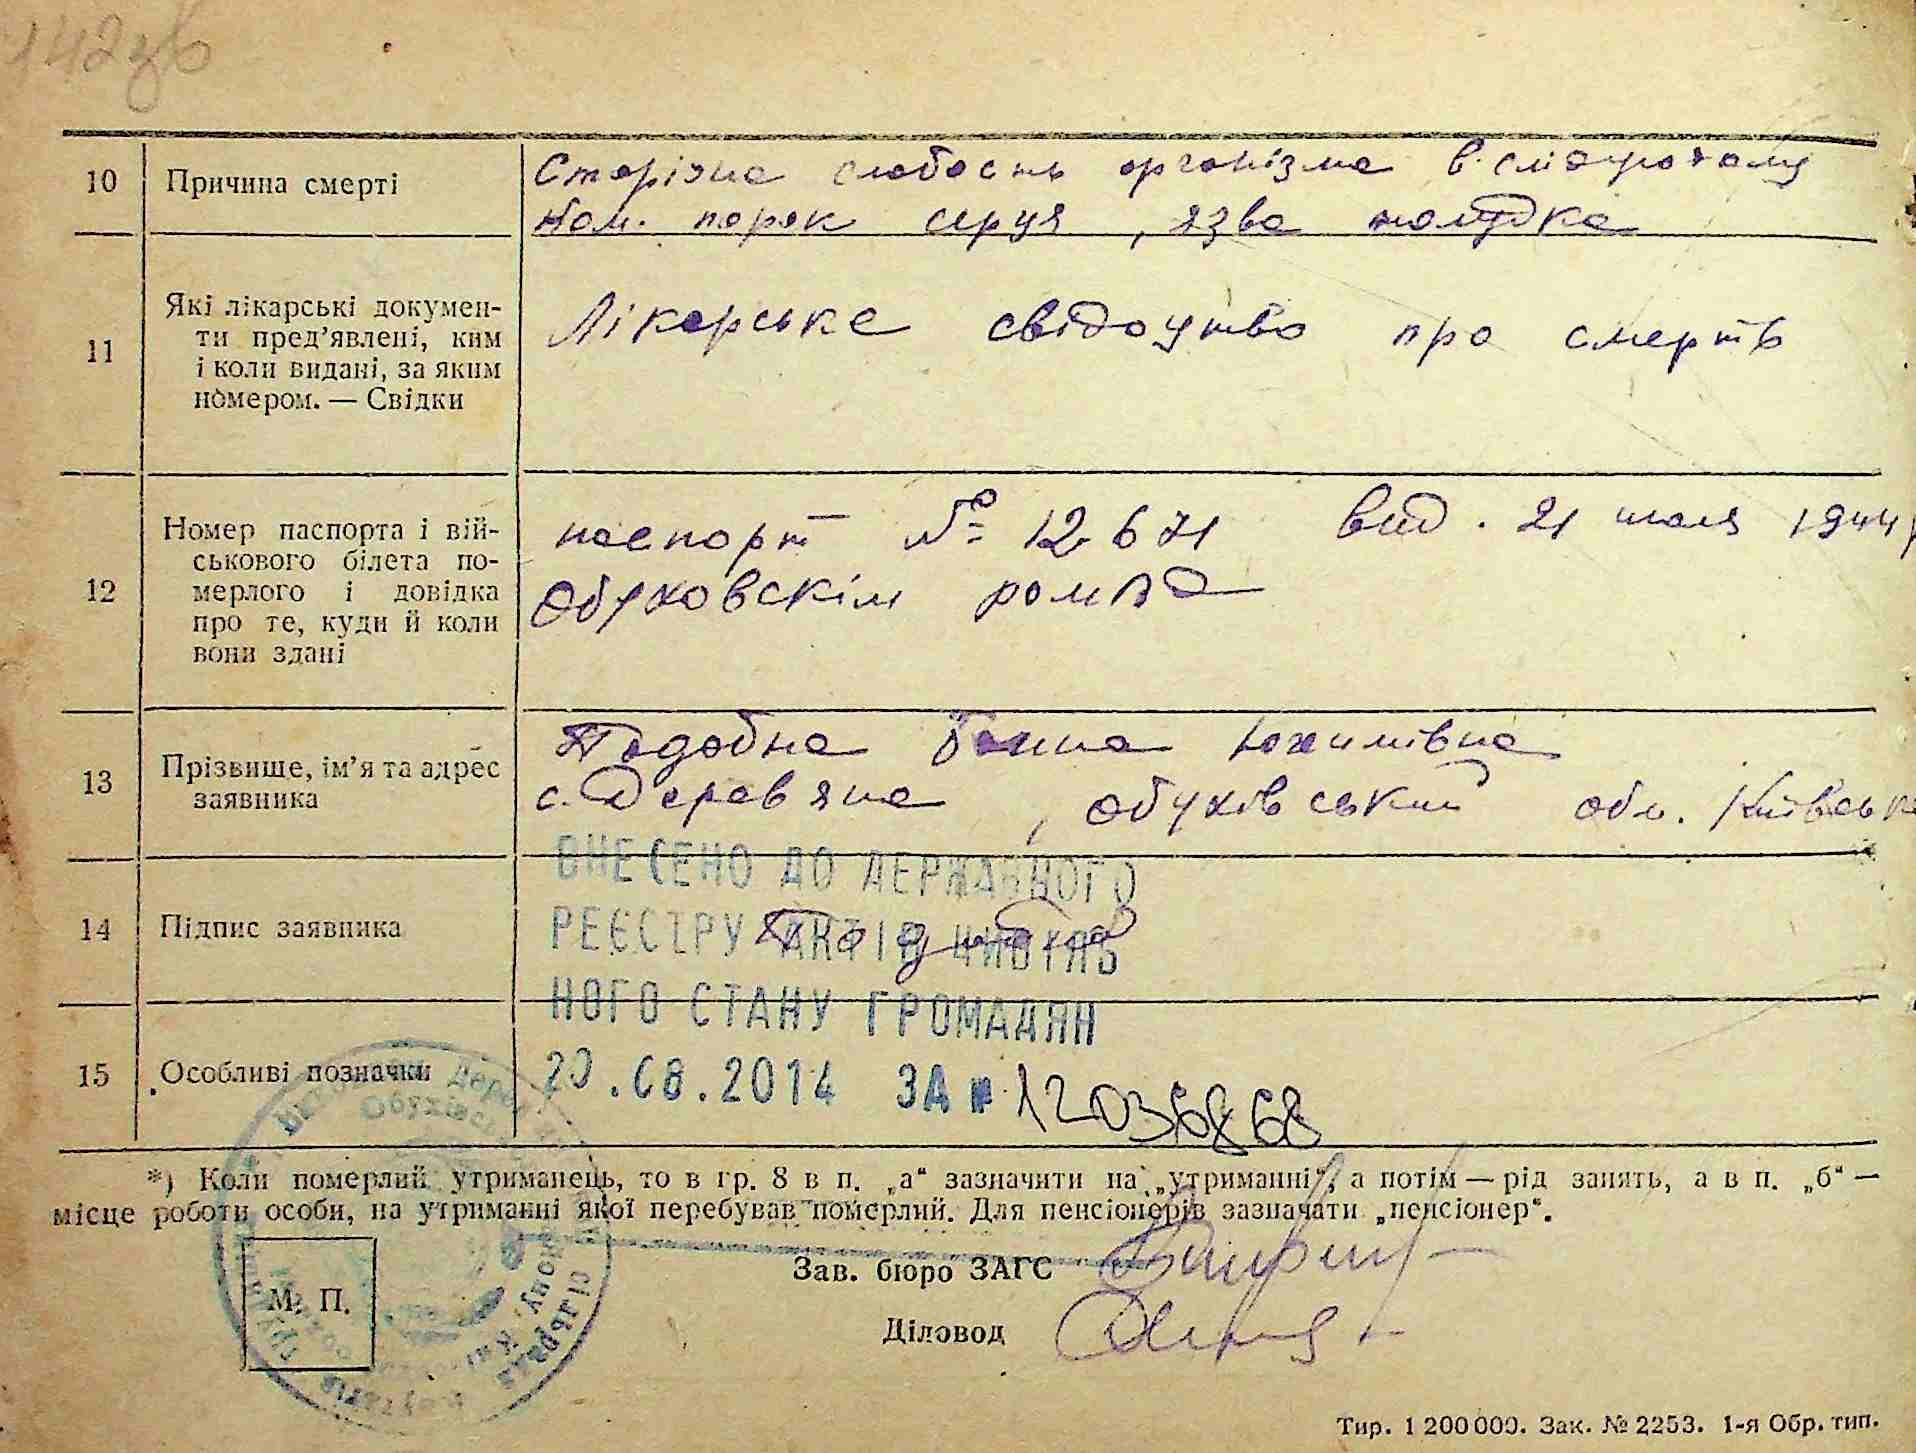 10 Причина смерті
Старічна слабость організма
порок серця, язва желудка
11 Які лікарські докумен-
ти пред’явлені, ким
і коли видані, за яким
номером. — Свідки
Лікарське свідоцтво про смерть
12 Номер паспорта і вій-
ськового білета по-
мерлого і довідка
про те, куди й коли
вони здані
паспорт № 12671 вид. 21 июля 1944
Обуховскім
13 Прізвище, ім’я та адрес
заявника
Подобна Юхимівна
с. Дерев'яна, Обухівський обл. Київська
14 Підпис заявника
ВНЕСЕНО ДО ДЕРЖАВНОГО
РЕЄСТРУ АКТІВ ЦИВІЛЬ
НОГО СТАНУ ГРОМАДЯН
15 Особливі позначки
20.08.2014 ЗА № 12036868
*) Коли померлий утриманець, то в гр. 8 в п. „а“ зазначити на „утриманні“, а потім — рід занять, а в п. „б“ —
місце роботи особи, на утриманні якої перебував померлий. Для пенсіонерів зазначати „пенсіонер“.
Зав. бюро ЗАГС
М. П.
Діловод
Тир. 1 200 000. Зак. № 2253. 1-я Обр. тип.